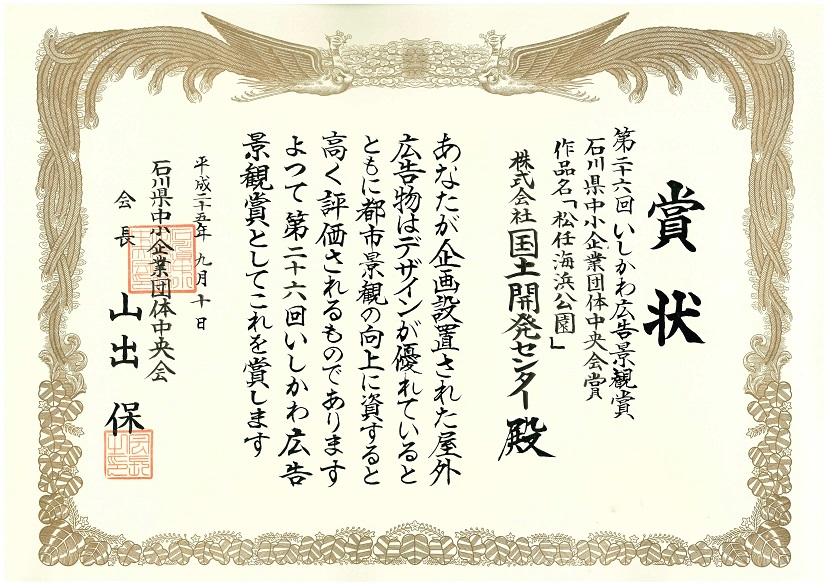 賞状
第二十六回いしかわ広告景観賞
石川県中小企業団体中央会賞
作品名「松任海浜公園」
株式会社国土開発センター殿
あなたが企画設置された屋外
広告物はデザインが優れていると
ともに都市景観の向上に資すると
高く評価されるものであります
よつて第二十六回いしかわ広告
景観賞としてこれを賞します
平成二十五年九月十日
石川県中小企業団体中央会
会長山出保